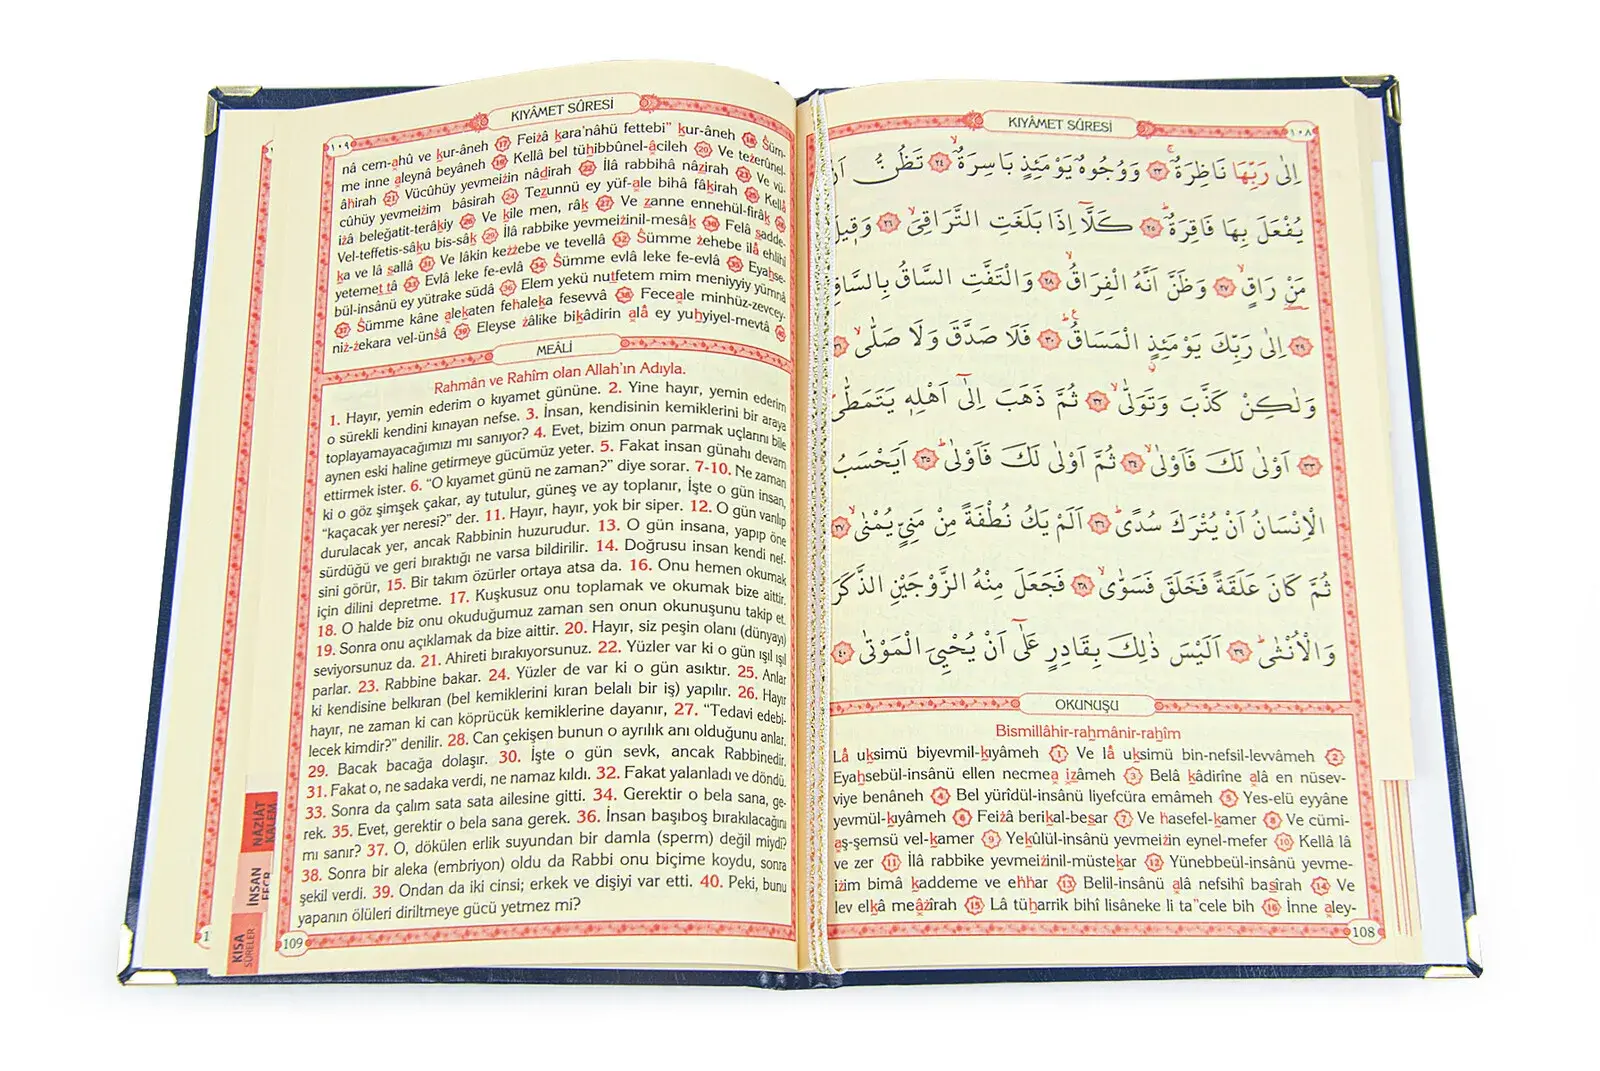 KIYÂMET SÛRESİ
١٠٨
اِلٰى رَبِّهَا نَاظِرَةٌۚ ﴿٢٣﴾ وَوُجُوهٌ يَوْمَئِذٍ بَاسِرَةٌۙ ﴿٢٤﴾ تَظُنُّ اَنْ
يُفْعَلَ بِهَا فَاقِرَةٌۜ ﴿٢٥﴾ كَلَّٓا اِذَا بَلَغَتِ التَّرَاقِيَۙ ﴿٢٦﴾ وَقٖيلَ
مَنْ رَاقٍۙ ﴿٢٧﴾ وَظَنَّ اَنَّهُ الْفِرَاقُۙ ﴿٢٨﴾ وَالْتَفَّتِ السَّاقُ بِالسَّاقِۙ
﴿٢٩﴾ اِلٰى رَبِّكَ يَوْمَئِذٍ الْمَسَاقُۜ ﴿٣٠﴾ فَلَا صَدَّقَ وَلَا صَلّٰىۙ ﴿٣١﴾
وَلٰكِنْ كَذَّبَ وَتَوَلّٰىۙ ﴿٣٢﴾ ثُمَّ ذَهَبَ اِلٰٓى اَهْلِهٖ يَتَمَطّٰىۜ
﴿٣٣﴾ اَوْلٰى لَكَ فَاَوْلٰىۙ ﴿٣٤﴾ ثُمَّ اَوْلٰى لَكَ فَاَوْلٰىۜ ﴿٣٥﴾ اَيَحْسَبُ
الْاِنْسَانُ اَنْ يُتْرَكَ سُدًىۜ ﴿٣٦﴾ اَلَمْ يَكُ نُطْفَةً مِنْ مَنِيٍّ يُمْنٰىۙ ﴿٣٧﴾
ثُمَّ كَانَ عَلَقَةً فَخَلَقَ فَسَوّٰىۙ ﴿٣٨﴾ فَجَعَلَ مِنْهُ الزَّوْجَيْنِ الذَّكَرَ
وَالْاُنْثٰىۜ ﴿٣٩﴾ اَلَيْسَ ذٰلِكَ بِقَادِرٍ عَلٰٓى اَنْ يُحْيِيَ الْمَوْتٰى ﴿٤٠﴾
OKUNUŞU
Bismillâhir-rahmânir-rahîm
Lâ uksimü biyevmil-kıyâmeh (1) Ve lâ uksimü bin-nefsil-levvâmeh (2)
Eyahsebül-insânü ellen necmea izâmeh (3) Belâ kâdirîne alâ en nüsev-
viye benâneh (4) Bel yürîdül-insânü liyefcüra emâmeh (5) Yes-elü eyyâne
yevmül-kıyâmeh (6) Feizâ berikal-besar (7) Ve hasefel-kamer (8) Ve cümi-
aş-şemsü vel-kamer (9) Yekûlül-insânü yevmeizin eynel-mefer (10) Kellâ lâ
ve zer (11) İlâ rabbike yevmeizinil-müstekar (12) Yünebbeül-insânü yevme-
izim bimâ kaddeme ve ehhar (13) Belil-insânü alâ nefsihî basîrah (14) Ve
lev elkâ meâzîrah (15) Lâ tüharrik bihî lisâneke li ta"cele bih (16) İnne aley-
108
KIYÂMET SÛRESİ
١٠٩
nâ cem-ahû ve kur-âneh (17) Feizâ kara'nâhü fettebi" kur-âneh (18) Süm-
me inne aleynâ beyâneh (19) Kellâ bel tühibbûnel-âcileh (20) Ve tezerûnel-
âhirah (21) Vücûhüy yevmeizin nâdirah (22) İlâ rabbihâ nâzirah (23) Ve vü-
cûhüy yevmeizim bâsirah (24) Tezunnü ey yüf-ale bihâ fâkirah (25) Kellâ
izâ beleğatit-terâkiy (26) Ve kile men, râk (27) Ve zanne ennehül-firâk (28)
Vel-teffetis-sâku bis-sâk (29) İlâ rabbike yevmeizinil-mesâk (30) Felâ sadde-
ka ve lâ sallâ (31) Ve lâkin kezzebe ve tevellâ (32) Sümme zehebe ilâ ehlihî
yetemettâ (33) Evlâ leke fe-evlâ (34) Sümme evlâ leke fe-evlâ (35) Eyahse-
bül-insânü ey yütrake südâ (36) Elem yekü nutfetem mim meniyyiy yümnâ
(37) Sümme kâne alekaten fehaleka fesevvâ (38) Feceale minhüz-zevcey-
niz-zekara vel-ünsâ (39) Eleyse zâlike bikâdirin alâ ey yuhyiyel-mevtâ (40)
MEÂLİ
Rahmân ve Rahîm olan Allah'ın Adıyla.
1. Hayır, yemin ederim o kıyamet gününe. 2. Yine hayır, yemin ederim
o sürekli kendini kınayan nefse. 3. İnsan, kendisinin kemiklerini bir araya
toplayamayacağımızı mı sanıyor? 4. Evet, bizim onun parmak uçlarını bile
aynen eski haline getirmeye gücümüz yeter. 5. Fakat insan günahı devam
ettirmek ister. 6. "O kıyamet günü ne zaman?" diye sorar. 7-10. Ne zaman
ki o göz şimşek çakar, ay tutulur, güneş ve ay toplanır, İşte o gün insan,
"kaçacak yer neresi?" der. 11. Hayır, hayır, yok bir siper. 12. O gün varılıp
durulacak yer, ancak Rabbinin huzurudur. 13. O gün insana, yapıp öne
sürdüğü ve geri bıraktığı ne varsa bildirilir. 14. Doğrusu insan kendi nef-
sini görür, 15. Bir takım özürler ortaya atsa da. 16. Onu hemen okumak
için dilini depretme. 17. Kuşkusuz onu toplamak ve okumak bize aittir.
18. O halde biz onu okuduğumuz zaman sen onun okunuşunu takip et.
19. Sonra onu açıklamak da bize aittir. 20. Hayır, siz peşin olanı (dünyayı)
seviyorsunuz da. 21. Ahireti bırakıyorsunuz. 22. Yüzler var ki o gün ışıl ışıl
parlar. 23. Rabbine bakar. 24. Yüzler de var ki o gün asıktır. 25. Anlar
ki kendisine belkıran (bel kemiklerini kıran belalı bir iş) yapılır. 26. Hayır
hayır, ne zaman ki can köprücük kemiklerine dayanır, 27. "Tedavi edebi-
lecek kimdir?" denilir. 28. Can çekişen bunun o ayrılık anı olduğunu anlar.
29. Bacak bacağa dolaşır. 30. İşte o gün sevk, ancak Rabbinedir.
31. Fakat o, ne sadaka verdi, ne namaz kıldı. 32. Fakat yalanladı ve döndü.
33. Sonra da çalım sata sata ailesine gitti. 34. Gerektir o bela sana, ge-
rek. 35. Evet, gerektir o bela sana gerek. 36. İnsan başıboş bırakılacağını
mı sanır? 37. O, dökülen erlik suyundan bir damla (sperm) değil miydi?
38. Sonra bir aleka (embriyon) oldu da Rabbi onu biçime koydu, sonra
şekil verdi. 39. Ondan da iki cinsi; erkek ve dişiyi var etti. 40. Peki, bunu
yapanın ölüleri diriltmeye gücü yetmez mi?
109
NÂZİÂT
KALEM
İNSAN
FECR
KISA
SÛRELER